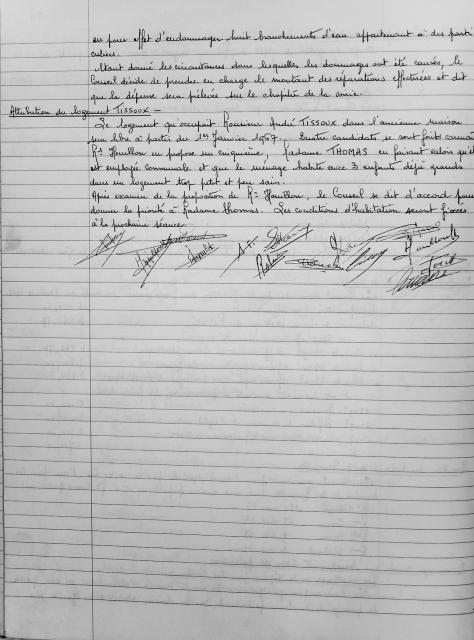 eu pour effet d'endommager huit branchements d'eau appartenant à des parti
culiers.
Etant donné les circonstances dans lesquelles les dommages ont été causés, le
Conseil décide de prendre en charge le montant des réparations effectuées et dit
que la dépense sera prélevée sur le chapitre de la voirie.
Attribution du logement TISSOUX -
Le logement qu'occupait Monsieur André TISSOUX dans l'ancienne maison
sera libre à partir du 1er Janvier 1957. Quatre candidats se sont faits connaître
Mr Houillon en propose un cinquième, Madame THOMAS en faisant valoir qu'elle
est employée communale et que le ménage habite avec 3 enfants déjà grands
dans un logement trop petit et peu sain.
Après examen de la proposition de Mr Houillon, le Conseil se dit d'accord pour
donner la priorité à Madame Thomas. Les conditions d'habitation seront fixées
à la prochaine séance.